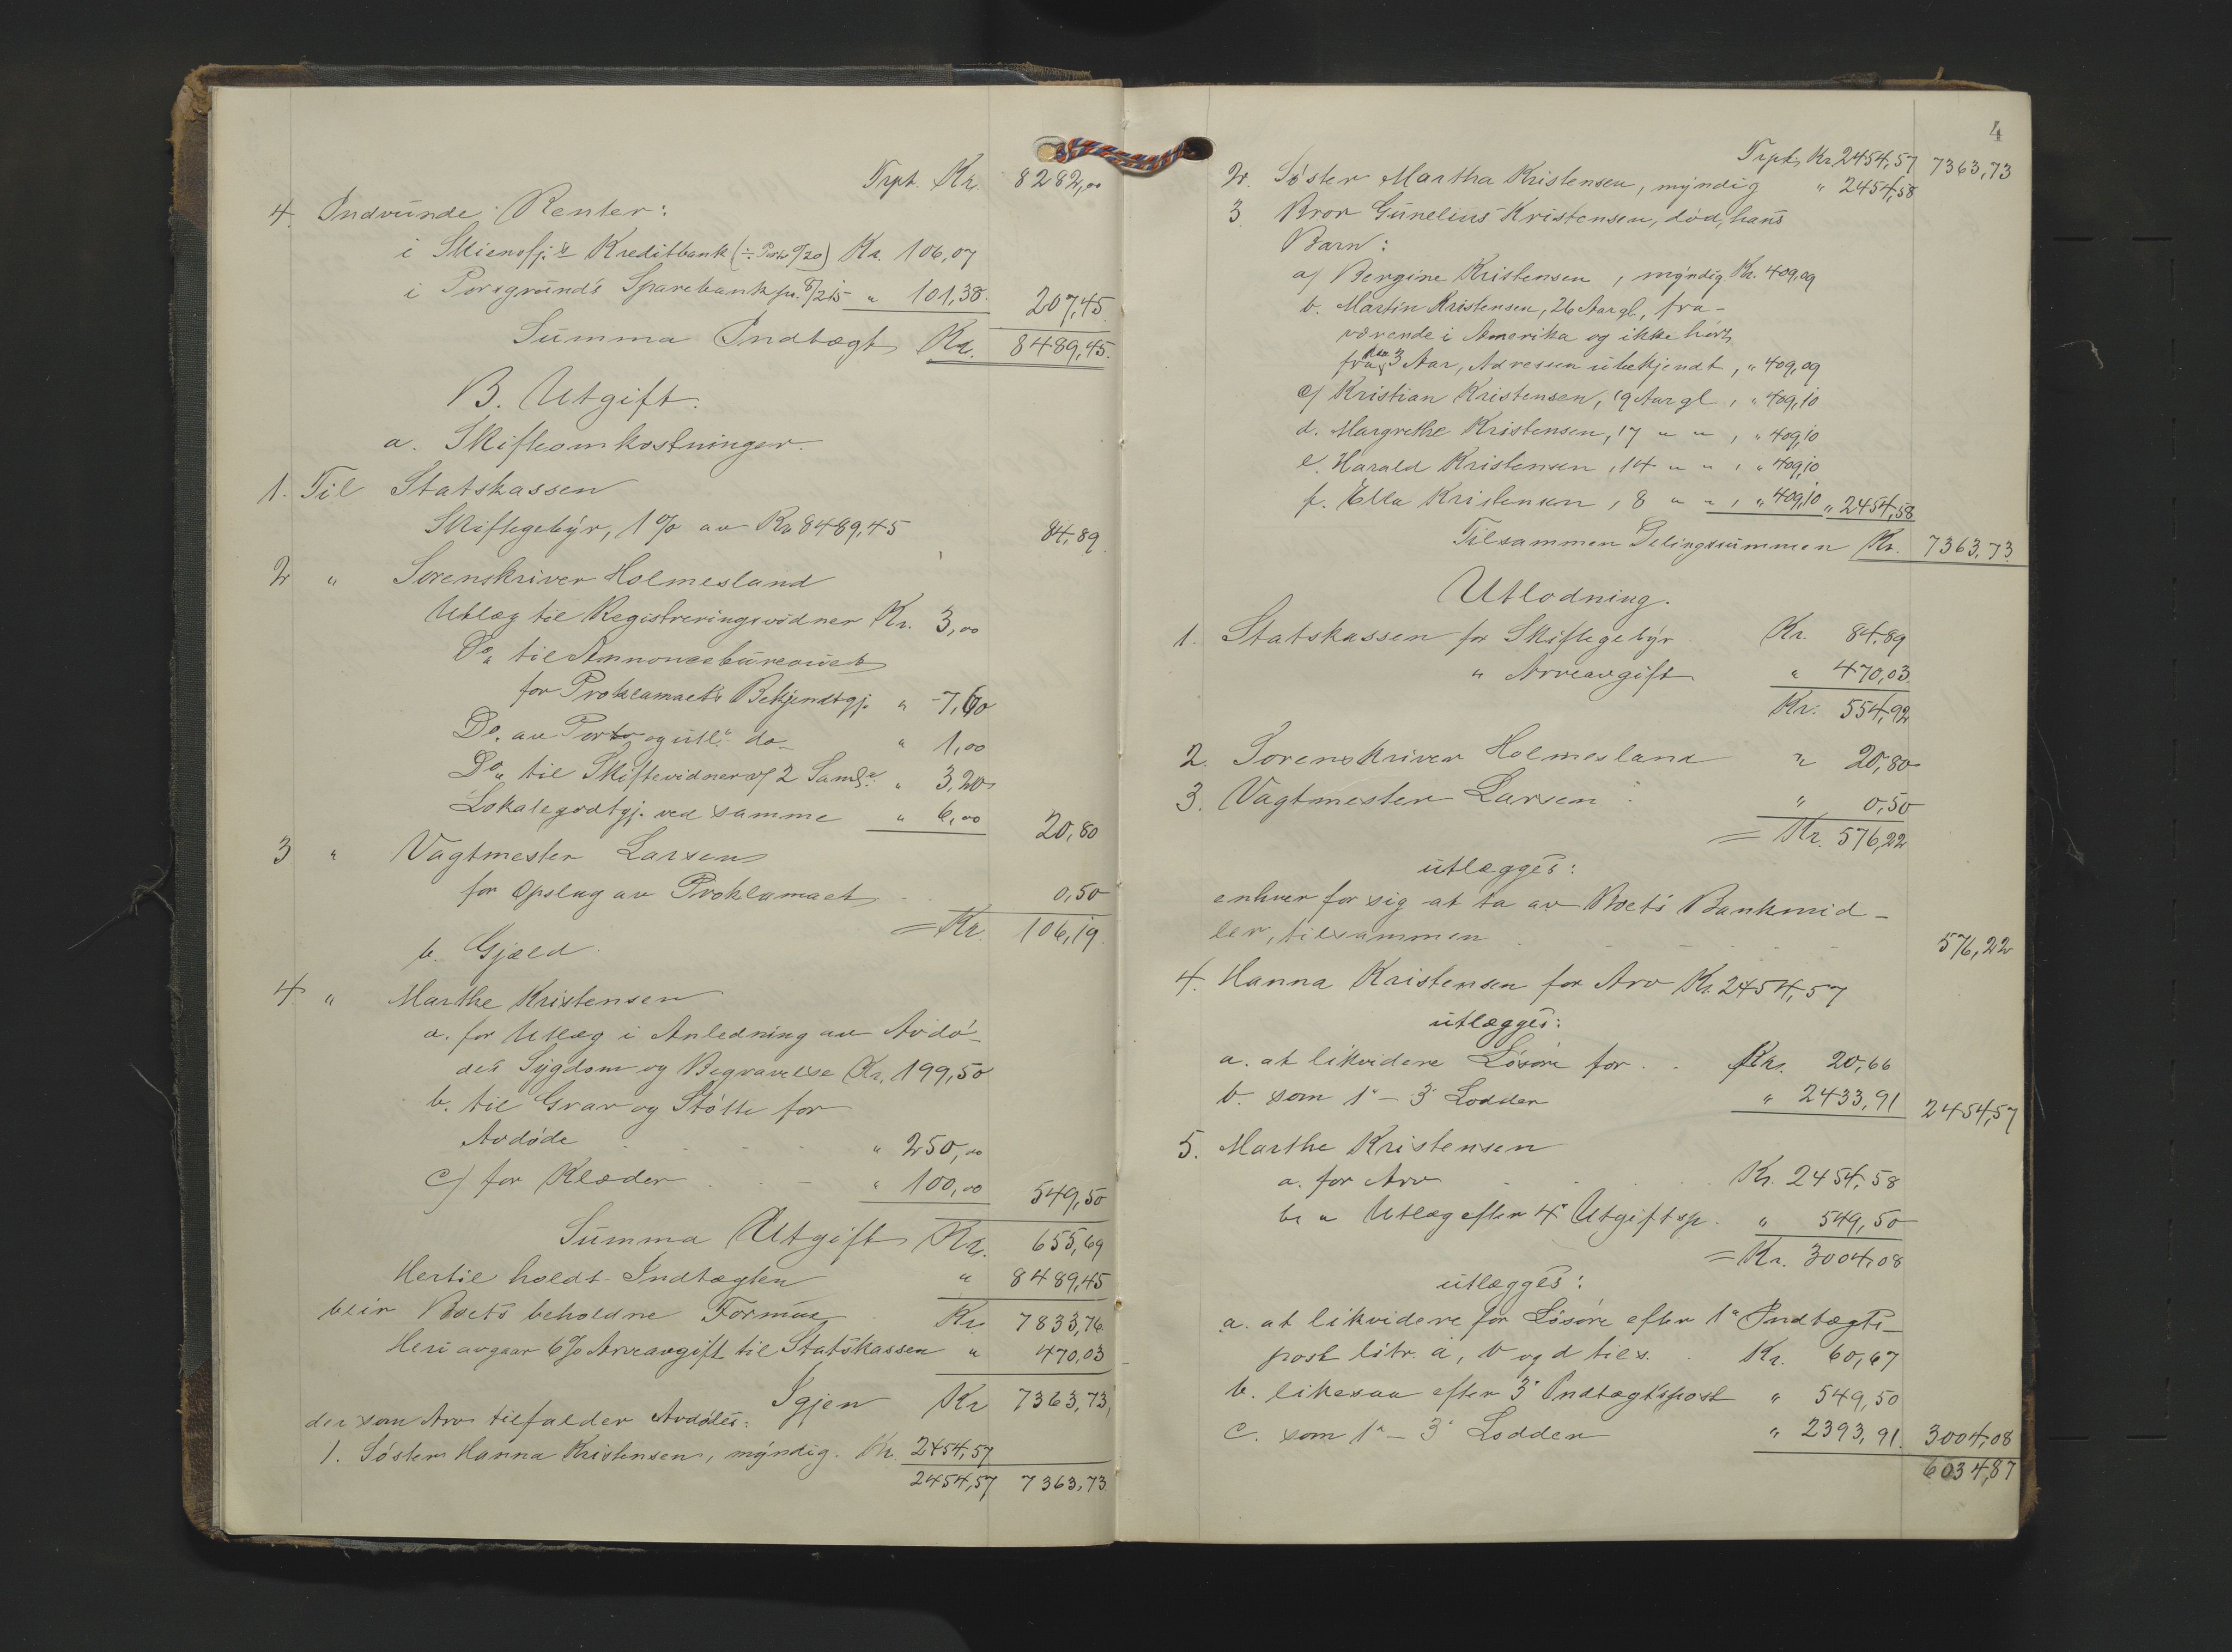 Trpt. Kr. 8282,00
4. Indvundne Renter:
i Skiensfj.s Kreditbank (÷ Porto 0/20) Kr. 106,07
i Porsgrunds Sparebank pr. 8/2 15 " 101,38. 207,45
Summa Indtægt Kr. 8489,45.
B. Utgift.
a. Skifteomkostninger.
1. Til Statskassen
Skiftegebyr, 1% av Kr 8489,45 84,89
2 " Sorenskriver Holmesland
Utlæg til Registreringsvidner Kr. 3,00
Do. til Annoncebureauet
for Proklamaets Bekjendtgj. " 7,60
Do. av Porto og utl. do " 1,00
Do. til Skiftevidner v/ 2 Saml. " 3,20
Lokalegodtgj. ved samme " 6,00 20,80
3 " Vagtmester Larsen
for Opslag av Proklamaet 0,50
= Kr. 106,19.
b. Gjæld.
4 " Marthe Kristensen
a. for Utlæg i Anledning av Avdø-
des Sygdom og Begravelse Kr. 199,50
b. til Grav og Støtte for
Avdøde " 250,00
c) for Klæder " 100,00 549,50
Summa Utgift Kr. 655,69
Hertil holdt Indtægten " 8489,45
blir Boets beholdne Formue Kr. 7833,76
Heri avgaar 6% Arveavgift til Statskassen " 470,03
Igjen Kr 7363,73,
der som Arv tilfalder Avdødes:
1. Søster Hanna Kristensen, myndig. Kr. 2454,57
2454,57 7363,73.
4
Trpt. Kr. 2454,57 7363,73
2. Søster Martha Kristensen, myndig " 2454,58
3 Bror Gunelius Kristensen, død, hans
Barn:
a) Bergine Kristensen, myndig Kr. 409,09
b. Martin Kristensen, 26 Aar gl., fra-
værende i Amerika og ikke hørt
fra 3 Aar, Adressen ubekjendt, " 409,09
c) Kristian Kristensen, 19 Aar gl, " 409,10
d. Margrethe Kristensen, 17 " ", " 409,10
e. Harald Kristensen, 14 " ", " 409,10
f. Ella Kristensen, 8 " ", " 409,10 " 2454,58
Tilsammen Delingssummen Kr. 7363,73.
Utlodning.
1. Statskassen for Skiftegebyr Kr. 84,89
" Arveavgift " 470,03.
Kr. 554,92
2. Sorenskriver Holmesland " 20,80
3. Vagtmester Larsen " 0,50
= Kr. 576,22
utlægges:
enhver for sig at ta av Boets Bankmid-
ler, tilsammen 576,22
4. Hanna Kristensen for Arv Kr. 2454,57
utlægges:
a. at likvidere Løsøre for Kr. 20,66
b. som 1. - 3. Lodder " 2433,91 2454,57
5. Marthe Kristensen
a. for Arv Kr. 2454,58
b. " Utlæg efter 4. Utgiftsp. " 549,50
= Kr. 3004,08
utlægges:
a. at likvidere for Løsøre efter 1. Indtægts-
post litr. a, b og d tils. Kr. 60,67
b. likesaa efter 3. Indtægtspost " 549,50
c. som 1. - 3. Lodder " 2393,91. 3004,08
6034,87